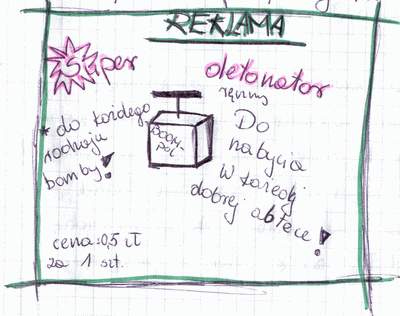 REKLAMA
Super detonator
ręczny
* do każdego
rodzaju
bomby!
BOOM-
POL
Do
nabycia
w każdej
dobrej abtece!
cena:0,5 zł
za 1 szt.